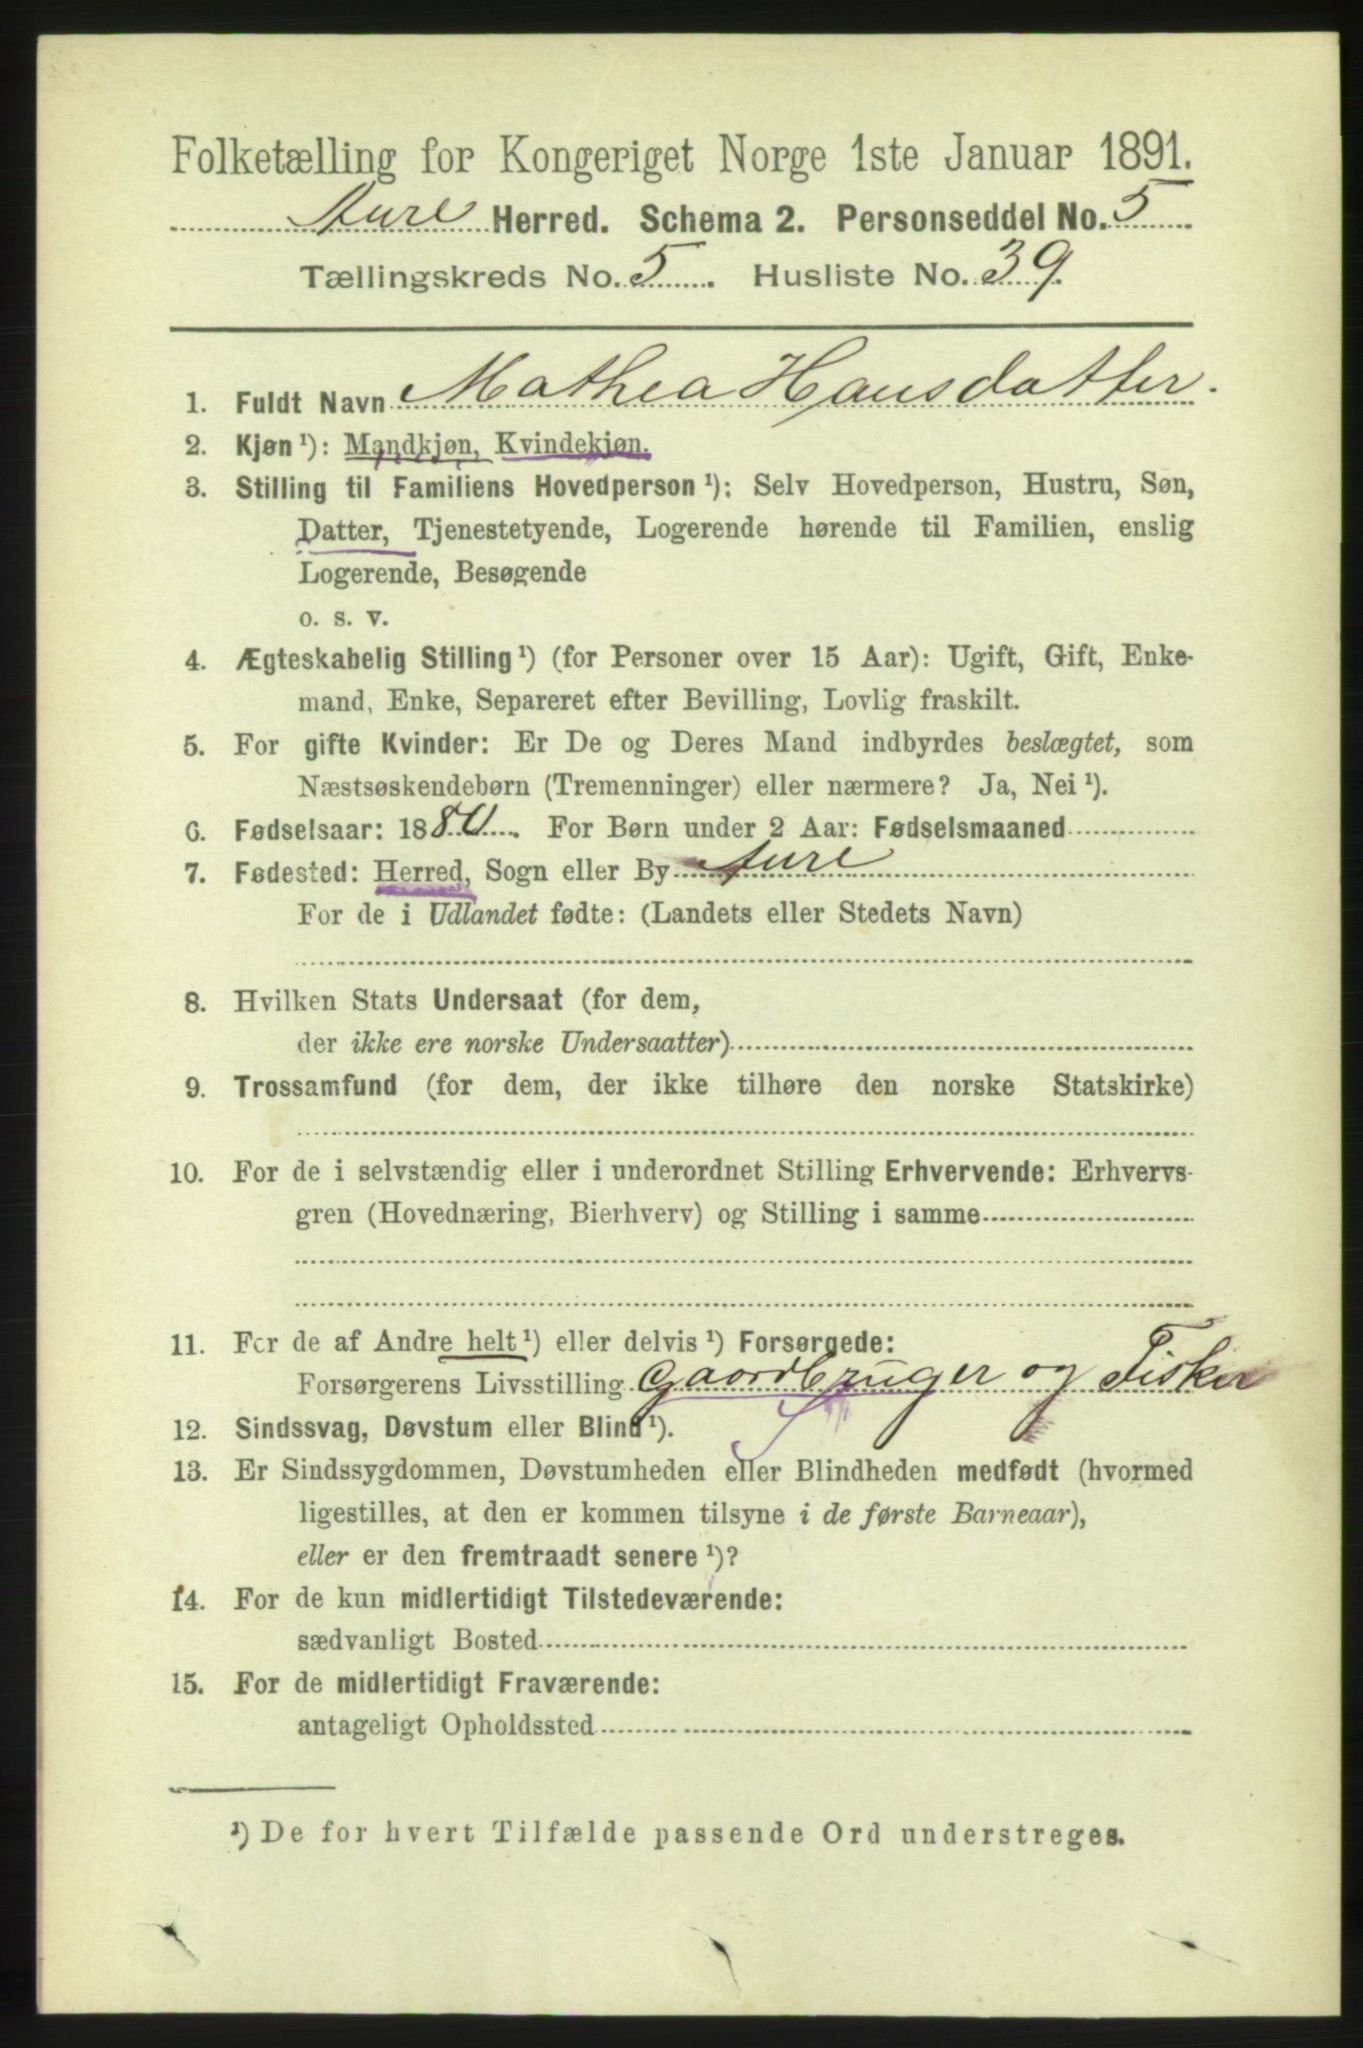 Folketælling for Kongeriget Norge 1ste Januar 1891.
Aure Herred. Schema 2. Personseddel No. 5
Tællingskreds No. 5. Husliste No. 39.
1. Fuldt Navn Mathea Hansdatter.
2. Kjøn ¹): Mandkjøn, Kvindekjøn.
3. Stilling til Familiens Hovedperson ¹): Selv Hovedperson, Hustru, Søn,
Datter, Tjenestetyende, Logerende hørende til Familien, enslig
Logerende, Besøgende
o. s. v.
4. Ægteskabelig Stilling ¹) (for Personer over 15 Aar): Ugift, Gift, Enke-
mand, Enke, Separeret efter Bevilling, Lovlig fraskilt.
5. For gifte Kvinder: Er De og Deres Mand indbyrdes beslægtet, som
Næstsøskendebørn (Tremenninger) eller nærmere? Ja, Nei ¹).
6. Fødselsaar: 1880. For Børn under 2 Aar: Fødselsmaaned
7. Fødested: Herred, Sogn eller By Aure
For de i Udlandet fødte: (Landets eller Stedets Navn)
8. Hvilken Stats Undersaat (for dem,
der ikke ere norske Undersaatter)
9. Trossamfund (for dem, der ikke tilhøre den norske Statskirke)
10. For de i selvstændig eller i underordnet Stilling Erhvervende: Erhvervs-
gren (Hovednæring, Bierhverv) og Stilling i samme
11. For de af Andre helt ¹) eller delvis ¹) Forsørgede:
Forsørgerens Livsstilling Gaardbruger og Fisker
12. Sindssvag, Døvstum eller Blind ¹).
13. Er Sindssygdommen, Døvstumheden eller Blindheden medfødt (hvormed
ligestilles, at den er kommen tilsyne i de første Barneaar),
eller er den fremtraadt senere ¹)?
14. For de kun midlertidigt Tilstedeværende:
sædvanligt Bosted
15. For de midlertidigt Fraværende:
antageligt Opholdssted
¹) De for hvert Tilfælde passende Ord understreges.